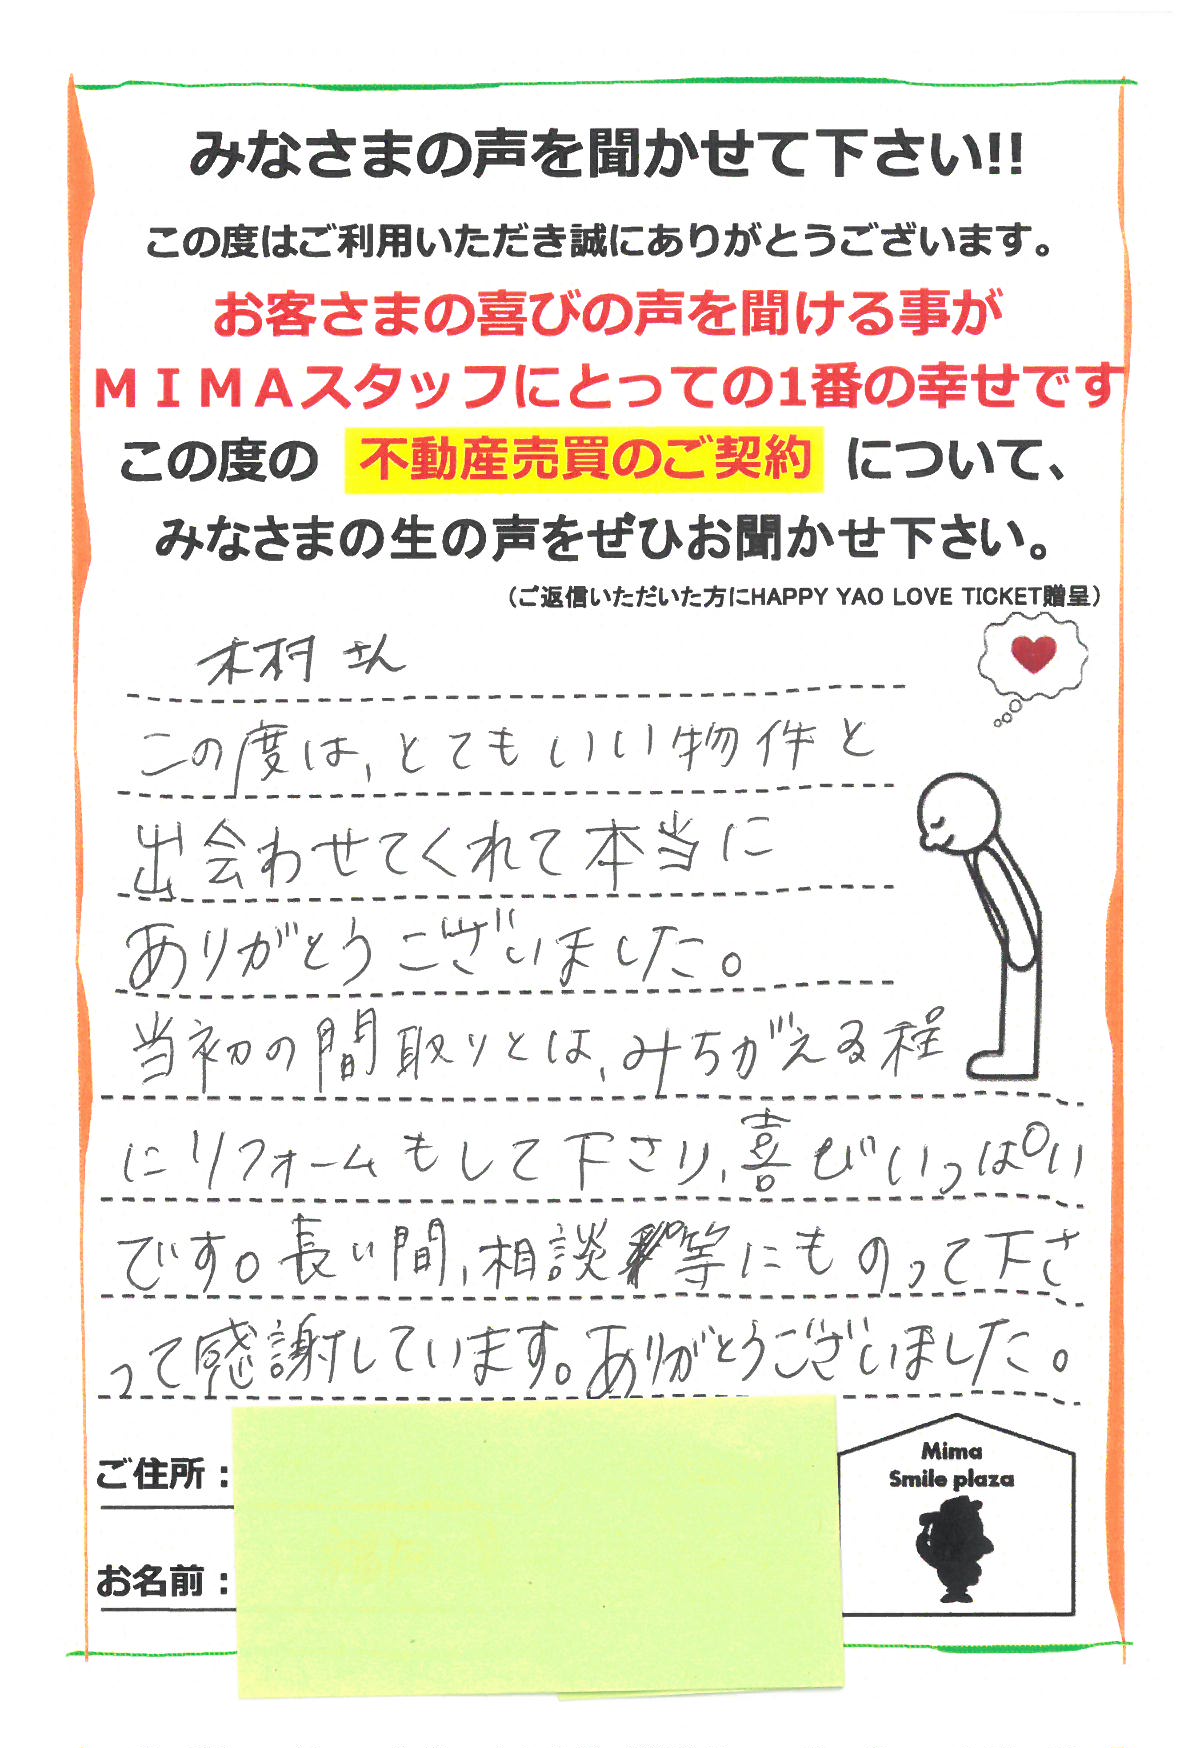 みなさまの声を聞かせて下さい!!
この度はご利用いただき誠にありがとうございます。
お客さまの喜びの声を聞ける事が
ＭＩＭＡスタッフにとっての1番の幸せです
この度の 不動産売買のご契約 について、
みなさまの生の声をぜひお聞かせ下さい。
（ご返信いただいた方にHAPPY YAO LOVE TICKET贈呈）
木村さん
この度は、とてもいい物件と
出会わせてくれて本当に
ありがとうございました。
当初の間取りとは、みちがえる程
にリフォームもして下さり、喜びいっぱい
です。長い間、相談等にものって下さ
って感謝しています。ありがとうございました。
ご住所：
お名前：
Mima
Smile plaza